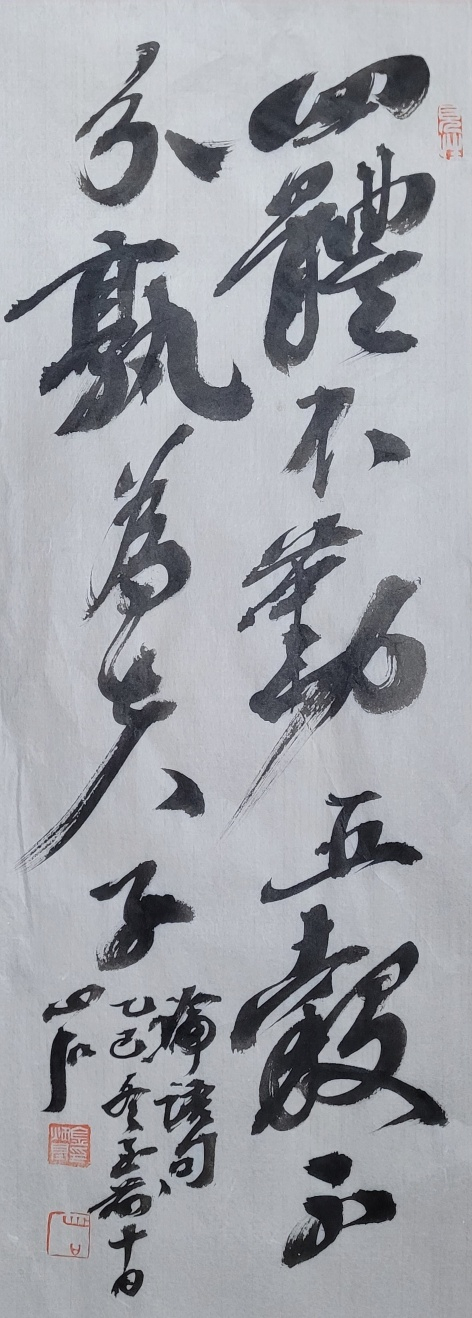 四體不勤五穀不
分孰為夫子
論語句
乙巳冬至前十日
山石